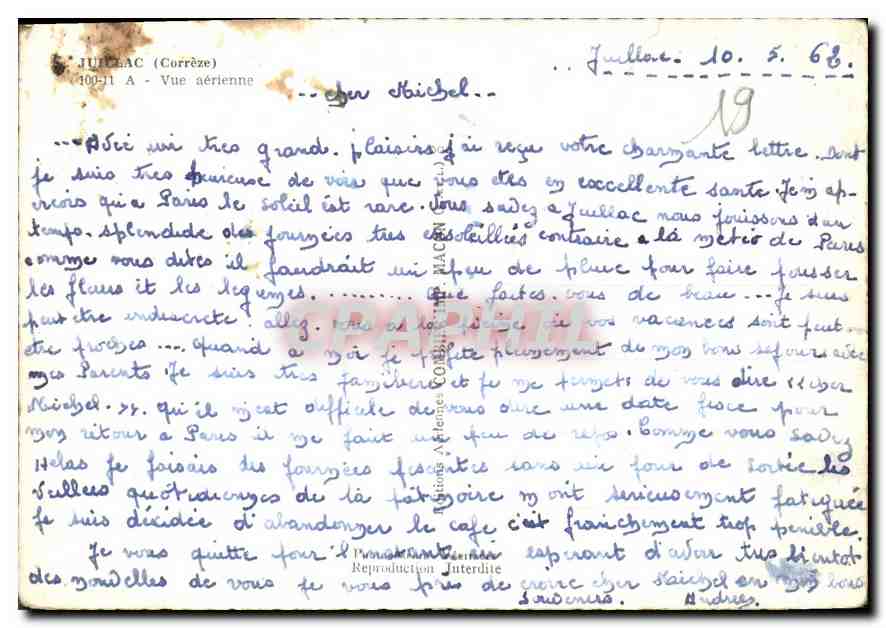 JUILLAC (Corrèze)
100-11 A - Vue aérienne
Juillac. 10. 5. 62.
19
-- cher Michel --
--- Avec un tres grand. plaisirs j'ai reçu votre charmante lettre. Dont
je suis tres heureuse de voir que vous etes en excellente santé. Je m'ap-
ercois qu'a Paris le soleil est rare. Vous savez a Juillac nous jouissons d'un
temps. splendide des journées tres ensoleillés contraire a la meteo de Paris
comme vous dites il faudrait un peu de pluie pour faire pousser
les fleurs et les legumes. ......... Que faites. vous de beau --- Je suis
peut etre indiscrete. allez. vous a la vos vacances sont peut.
etre proches ---. quand a moi je profite pleinement de mon bons sejours avec
mes Parents. Je suis tres familiere et je me permets de vous dire << cher
Michel. >>. qu'il m'est difficile de vous dire une date fisce pour
mon retour a Paris il me faut un peu de repos. Comme vous savez
Helas je faisais des journées pesantes sans un jour de sortie les
veillees quotidiennes de la patinoire m'ont serieusement fatiguée
je suis décidée d'abandonner le cafe c'est franchement trop penible.
Je vous quitte pour l'instant en esperant d'avoir tres bientot
des nouvelles de vous je vous pris de croire cher Michel en mon bons
souvenirs. Andrée.
Editions Aériennes COMBIER IMP. MACON
Reproduction Interdite
CPAPHIL